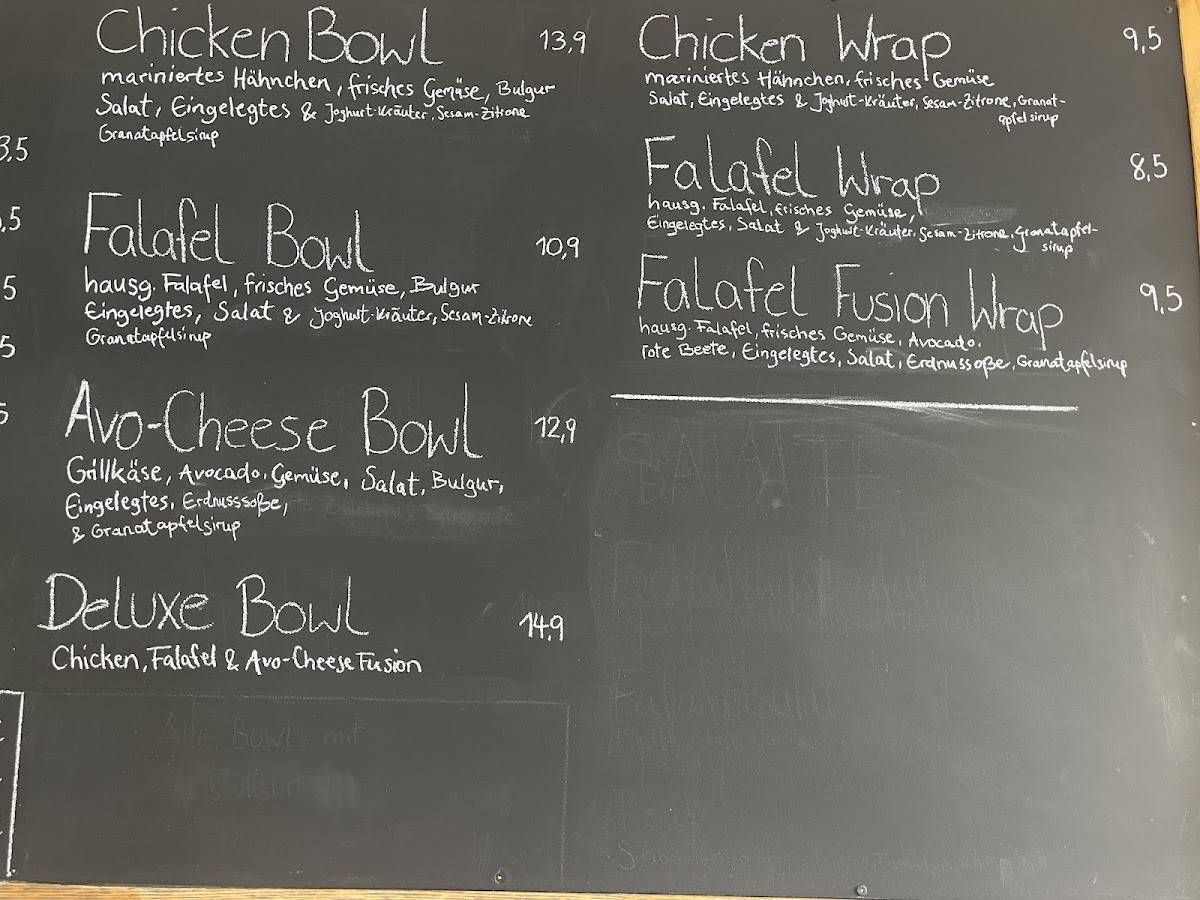 Chicken Bowl 13,9
mariniertes Hähnchen, frisches Gemüse, Bulgur
Salat, Eingelegtes & Joghurt-Kräuter, Sesam-Zitrone
Granatapfelsirup
Falafel Bowl 10,9
hausg. Falafel, frisches Gemüse, Bulgur
Eingelegtes, Salat & Joghurt-Kräuter, Sesam-Zitrone
Granatapfelsirup
Avo-Cheese Bowl 12,9
Grillkäse, Avocado, Gemüse, Salat, Bulgur,
Eingelegtes, Erdnusssoße,
& Granatapfelsirup
Deluxe Bowl 14,9
Chicken, Falafel & Avo-Cheese Fusion
Alle Bowls mit
Chicken Wrap 9,5
mariniertes Hähnchen, frisches Gemüse
Salat, Eingelegtes & Joghurt-Kräuter, Sesam-Zitrone, Granat-
apfelsirup
Falafel Wrap 8,5
hausg. Falafel, frisches Gemüse,
Eingelegtes, Salat & Joghurt-Kräuter, Sesam-Zitrone, Granatapfel-
sirup
Falafel Fusion Wrap 9,5
hausg. Falafel, frisches Gemüse, Avocado,
rote Beete, Eingelegtes, Salat, Erdnussoße, Granatapfelsirup